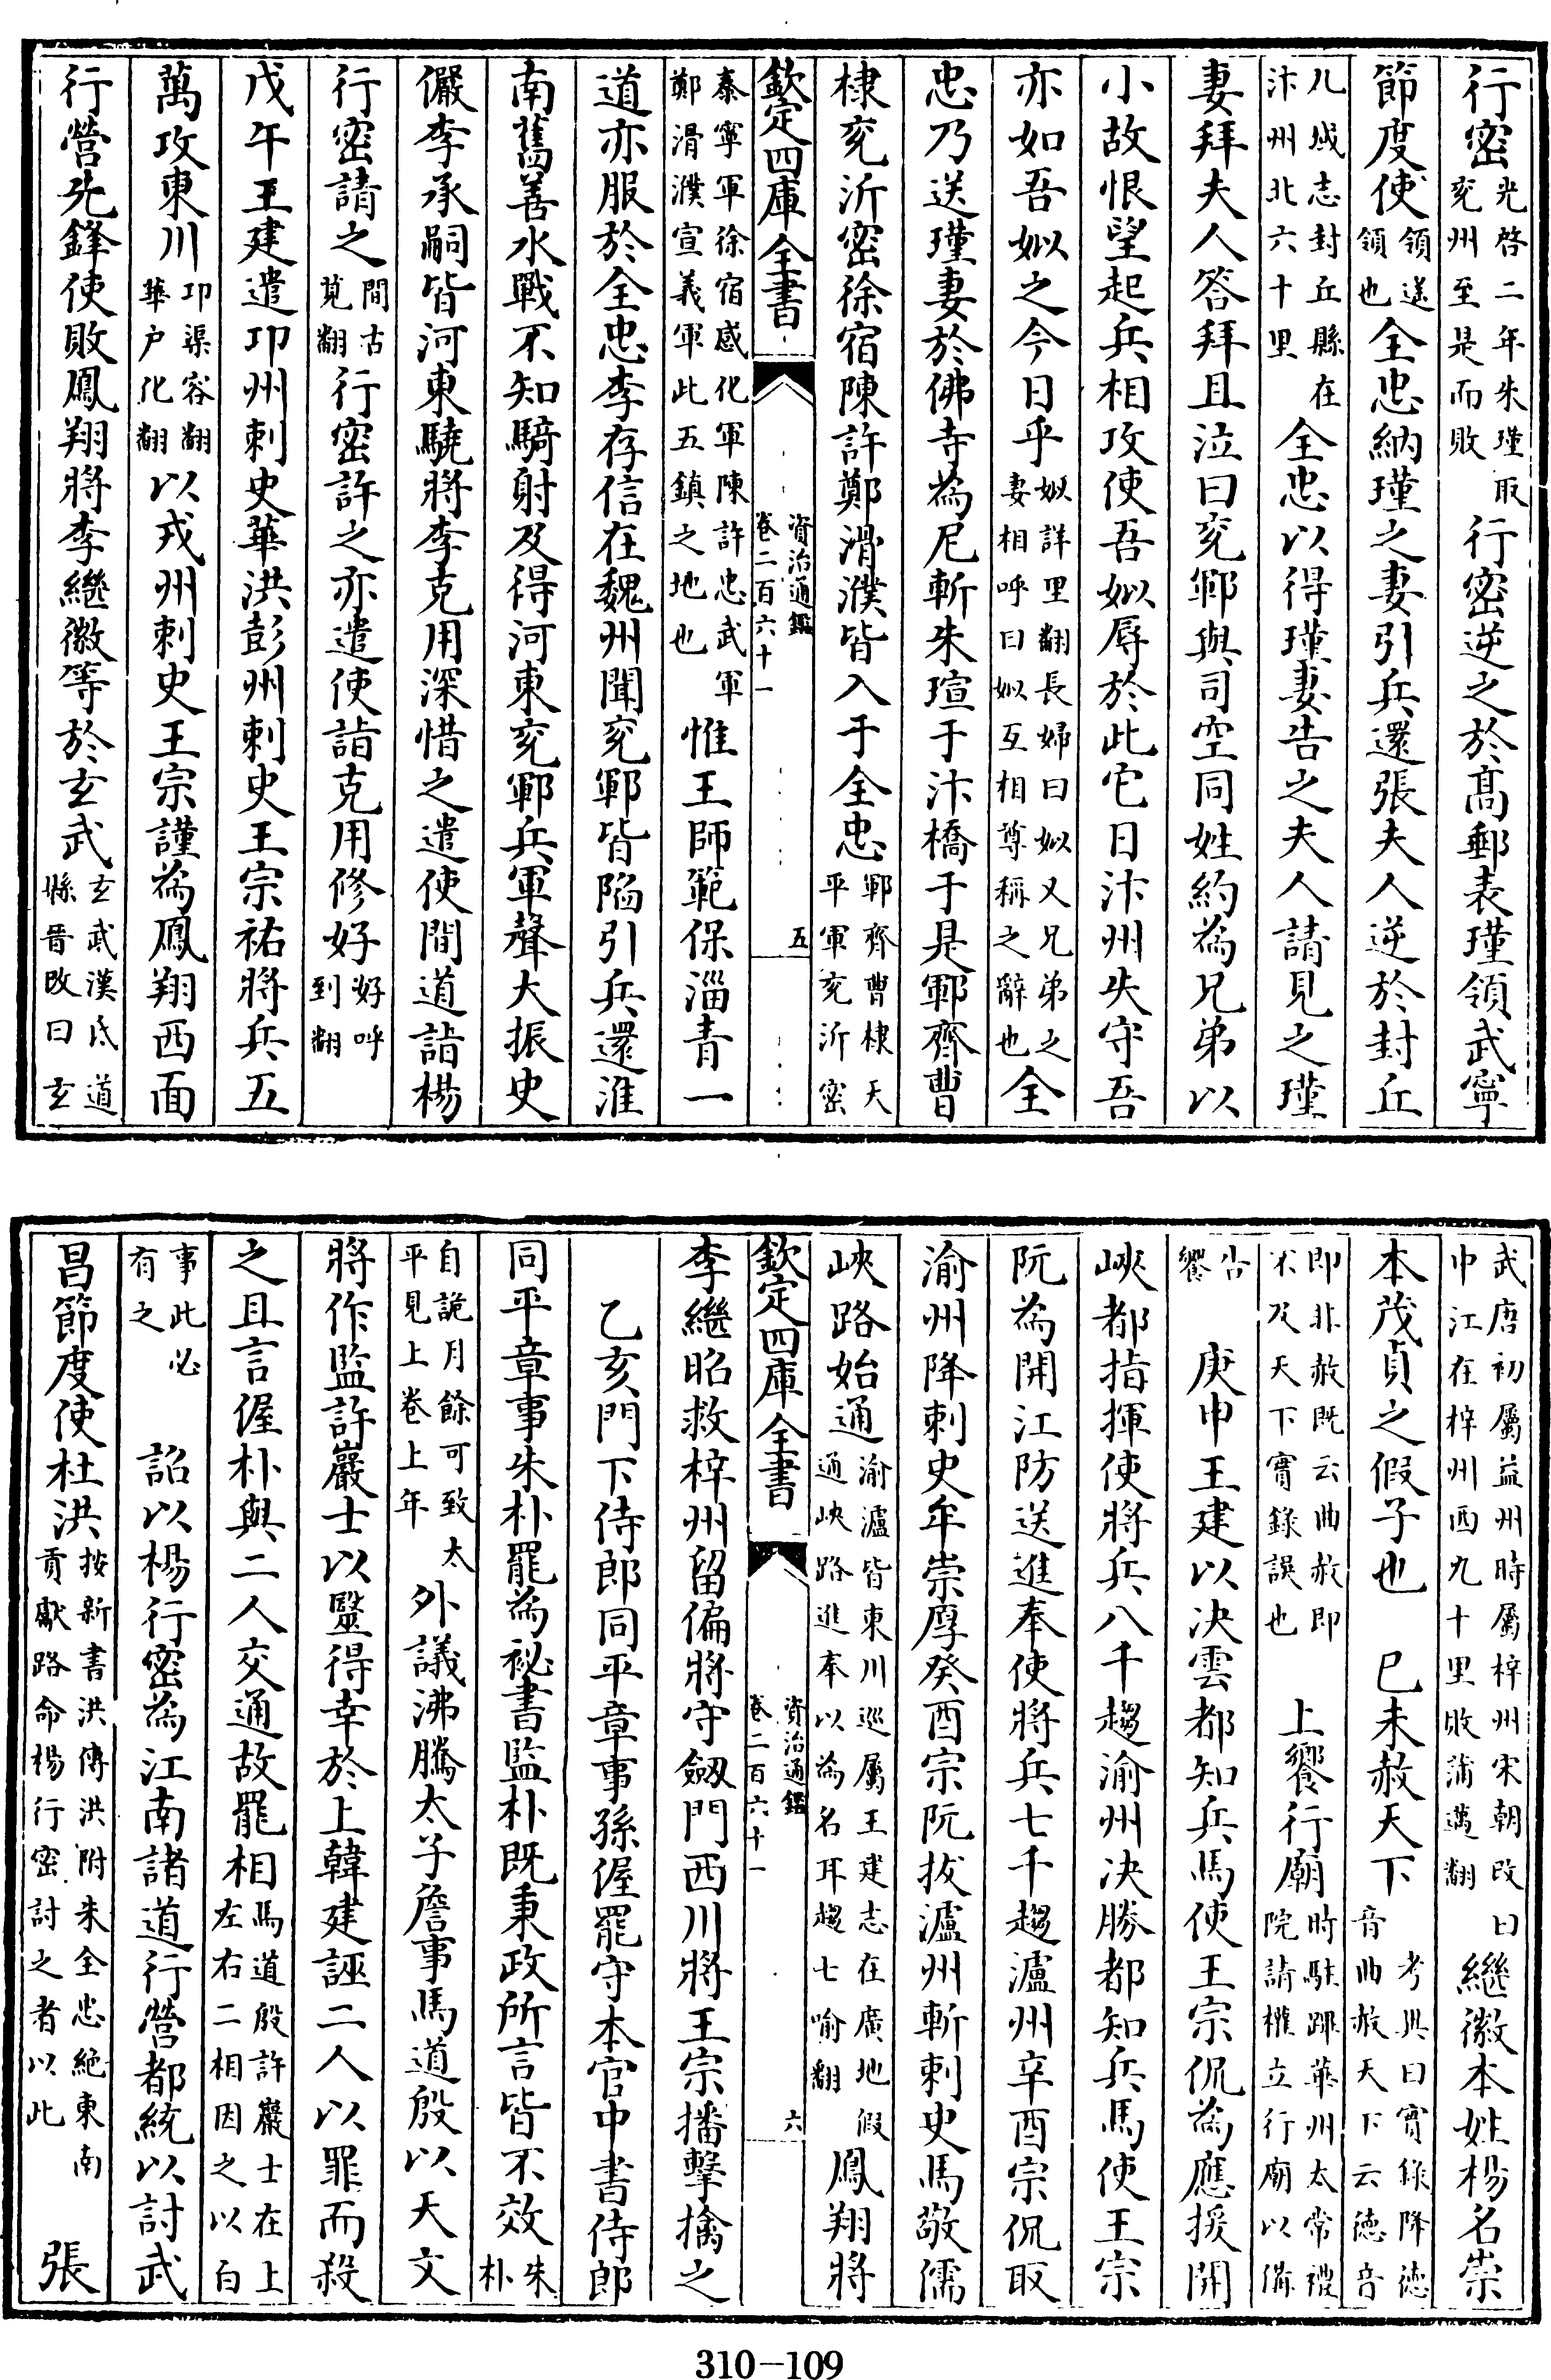 行密光啓二年朱瑾取兗州至是而敗行密逆之於髙郵表瑾領武寧
節度使領遥領也全忠納瑾之妻引兵還張夫人逆於封丘
九域志封丘縣在汴州北六十里全忠以得瑾妻告之夫人請見之瑾
妻拜夫人答拜且泣曰兗鄆與司空同姓約為兄弟以
小故恨望起兵相攻使吾姒辱於此它日汴州失守吾
亦如吾姒之今日乎姒詳里翻長婦曰姒又兄弟之妻相呼曰姒互相尊稱之辭也全
忠乃送瑾妻於佛寺為尼斬朱瑄于汴橋于是鄆齊曹
棣兗沂密徐宿陳許鄭滑濮皆入于全忠鄆齊曹棣天平軍兗沂密
欽定四庫全書 資治通鑑 卷二百六十一 五
泰寧軍徐宿感化軍陳許忠武軍鄭滑濮宣義軍此五鎮之地也惟王師範保淄青一
道亦服於全忠李存信在魏州聞兗鄆皆陷引兵還淮
南舊善水戰不知騎射及得河東兗鄆兵軍聲大振史
儼李承嗣皆河東驍將李克用深惜之遣使間道詣楊
行密請之間古莧翻行密許之亦遣使詣克用修好好呼到翻
戊午王建遣卭州刺史華洪彭州刺史王宗祐將兵五
萬攻東川卭渠容翻華户化翻以戎州刺史王宗謹為鳳翔西面
行營先鋒使敗鳳翔將李繼徽等於玄武玄武漢氐道縣晉改曰玄
武唐初屬益州時屬梓州宋朝改曰中江在梓州西九十里敗蒲邁翻繼徽本姓楊名崇
本茂貞之假子也 己未赦天下考異曰實錄降德音曲赦天下云德音
即非赦既云曲赦即不及天下實錄誤也 上饗行廟時駐蹕華州太常禮院請權立行廟以備
告饗 庚申王建以决雲都知兵馬使王宗侃為應援開
峽都指揮使將兵八千趨渝州决勝都知兵馬使王宗
阮為開江防送進奉使將兵七千趨瀘州辛酉宗侃取
渝州降刺史牟崇厚癸酉宗阮拔瀘州斬刺史馬敬儒
峽路始通渝瀘皆東川巡屬王建志在廣地假通峽路進奉以為名耳趨七喻翻 鳳翔將
欽定四庫全書 資治通鑑 卷二百六十一 六
李繼昭救梓州留偏將守劔門西川將王宗播擊擒之
乙亥門下侍郎同平章事孫偓罷守本官中書侍郎
同平章事朱朴罷為祕書監朴既秉政所言皆不效朱朴
自詭月餘可致太平見上卷上年外議沸騰太子詹事馬道殷以天文
將作監許巖士以毉得幸於上韓建誣二人以罪而殺
之且言偓朴與二人交通故罷相馬道殷許巖士在上左右二相因之以白
事此必有之 詔以楊行密為江南諸道行營都統以討武
昌節度使杜洪按新書洪傳洪附朱全忠絶東南貢獻路命楊行密討之者以此 張
310-109